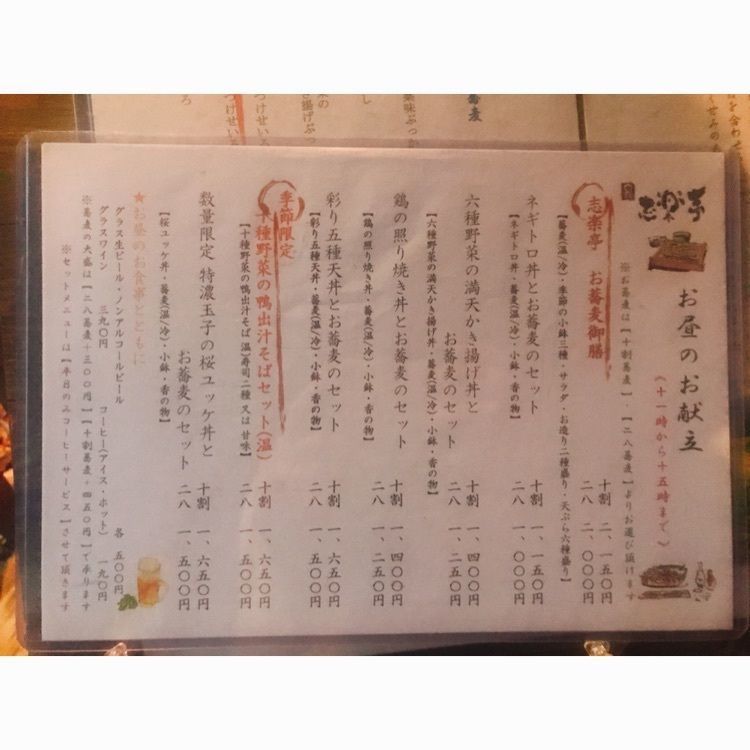 志楽亭
お昼のお献立
(十一時から十五時まで)
※お蕎麦は【十割蕎麦】・【二八蕎麦】よりお選び頂けます
志楽亭 お蕎麦御膳
十割 二、一五〇円
二八 二、〇〇〇円
【蕎麦(温/冷)・季節の小鉢三種・サラダ・お造り二種盛り・天ぷら六種盛り】
ネギトロ丼とお蕎麦のセット
十割 一、一五〇円
二八 一、〇〇〇円
【ネギトロ丼・蕎麦(温/冷)・小鉢・香の物】
六種野菜の満天かき揚げ丼と
お蕎麦のセット
十割 一、四〇〇円
二八 一、二五〇円
【六種野菜の満天かき揚げ丼・蕎麦(温/冷)・小鉢・香の物】
鶏の照り焼き丼とお蕎麦のセット
十割 一、四〇〇円
二八 一、二五〇円
【鶏の照り焼き丼・蕎麦(温/冷)・小鉢・香の物】
彩り五種天丼とお蕎麦のセット
十割 一、六五〇円
二八 一、五〇〇円
【彩り五種天丼・蕎麦(温/冷)・小鉢・香の物】
季節限定
十種野菜の鴨出汁そばセット(温)
十割 一、六五〇円
二八 一、五〇〇円
【十種野菜の鴨出汁そば(温)寿司二種 又は 甘味】
数量限定 特濃玉子の桜ユッケ丼と
お蕎麦のセット
十割 一、六五〇円
二八 一、五〇〇円
【桜ユッケ丼・蕎麦(温/冷)・小鉢・香の物】
★お昼のお食事とともに
グラス生ビール・ノンアルコールビール 各 五〇〇円
グラスワイン 三九〇円 コーヒー(アイス・ホット) 一九〇円
※蕎麦の大盛は【二八蕎麦+三〇〇円】【十割蕎麦+四五〇円】で承ります
※セットメニューは【平日のみコーヒーサービス】させて頂きます